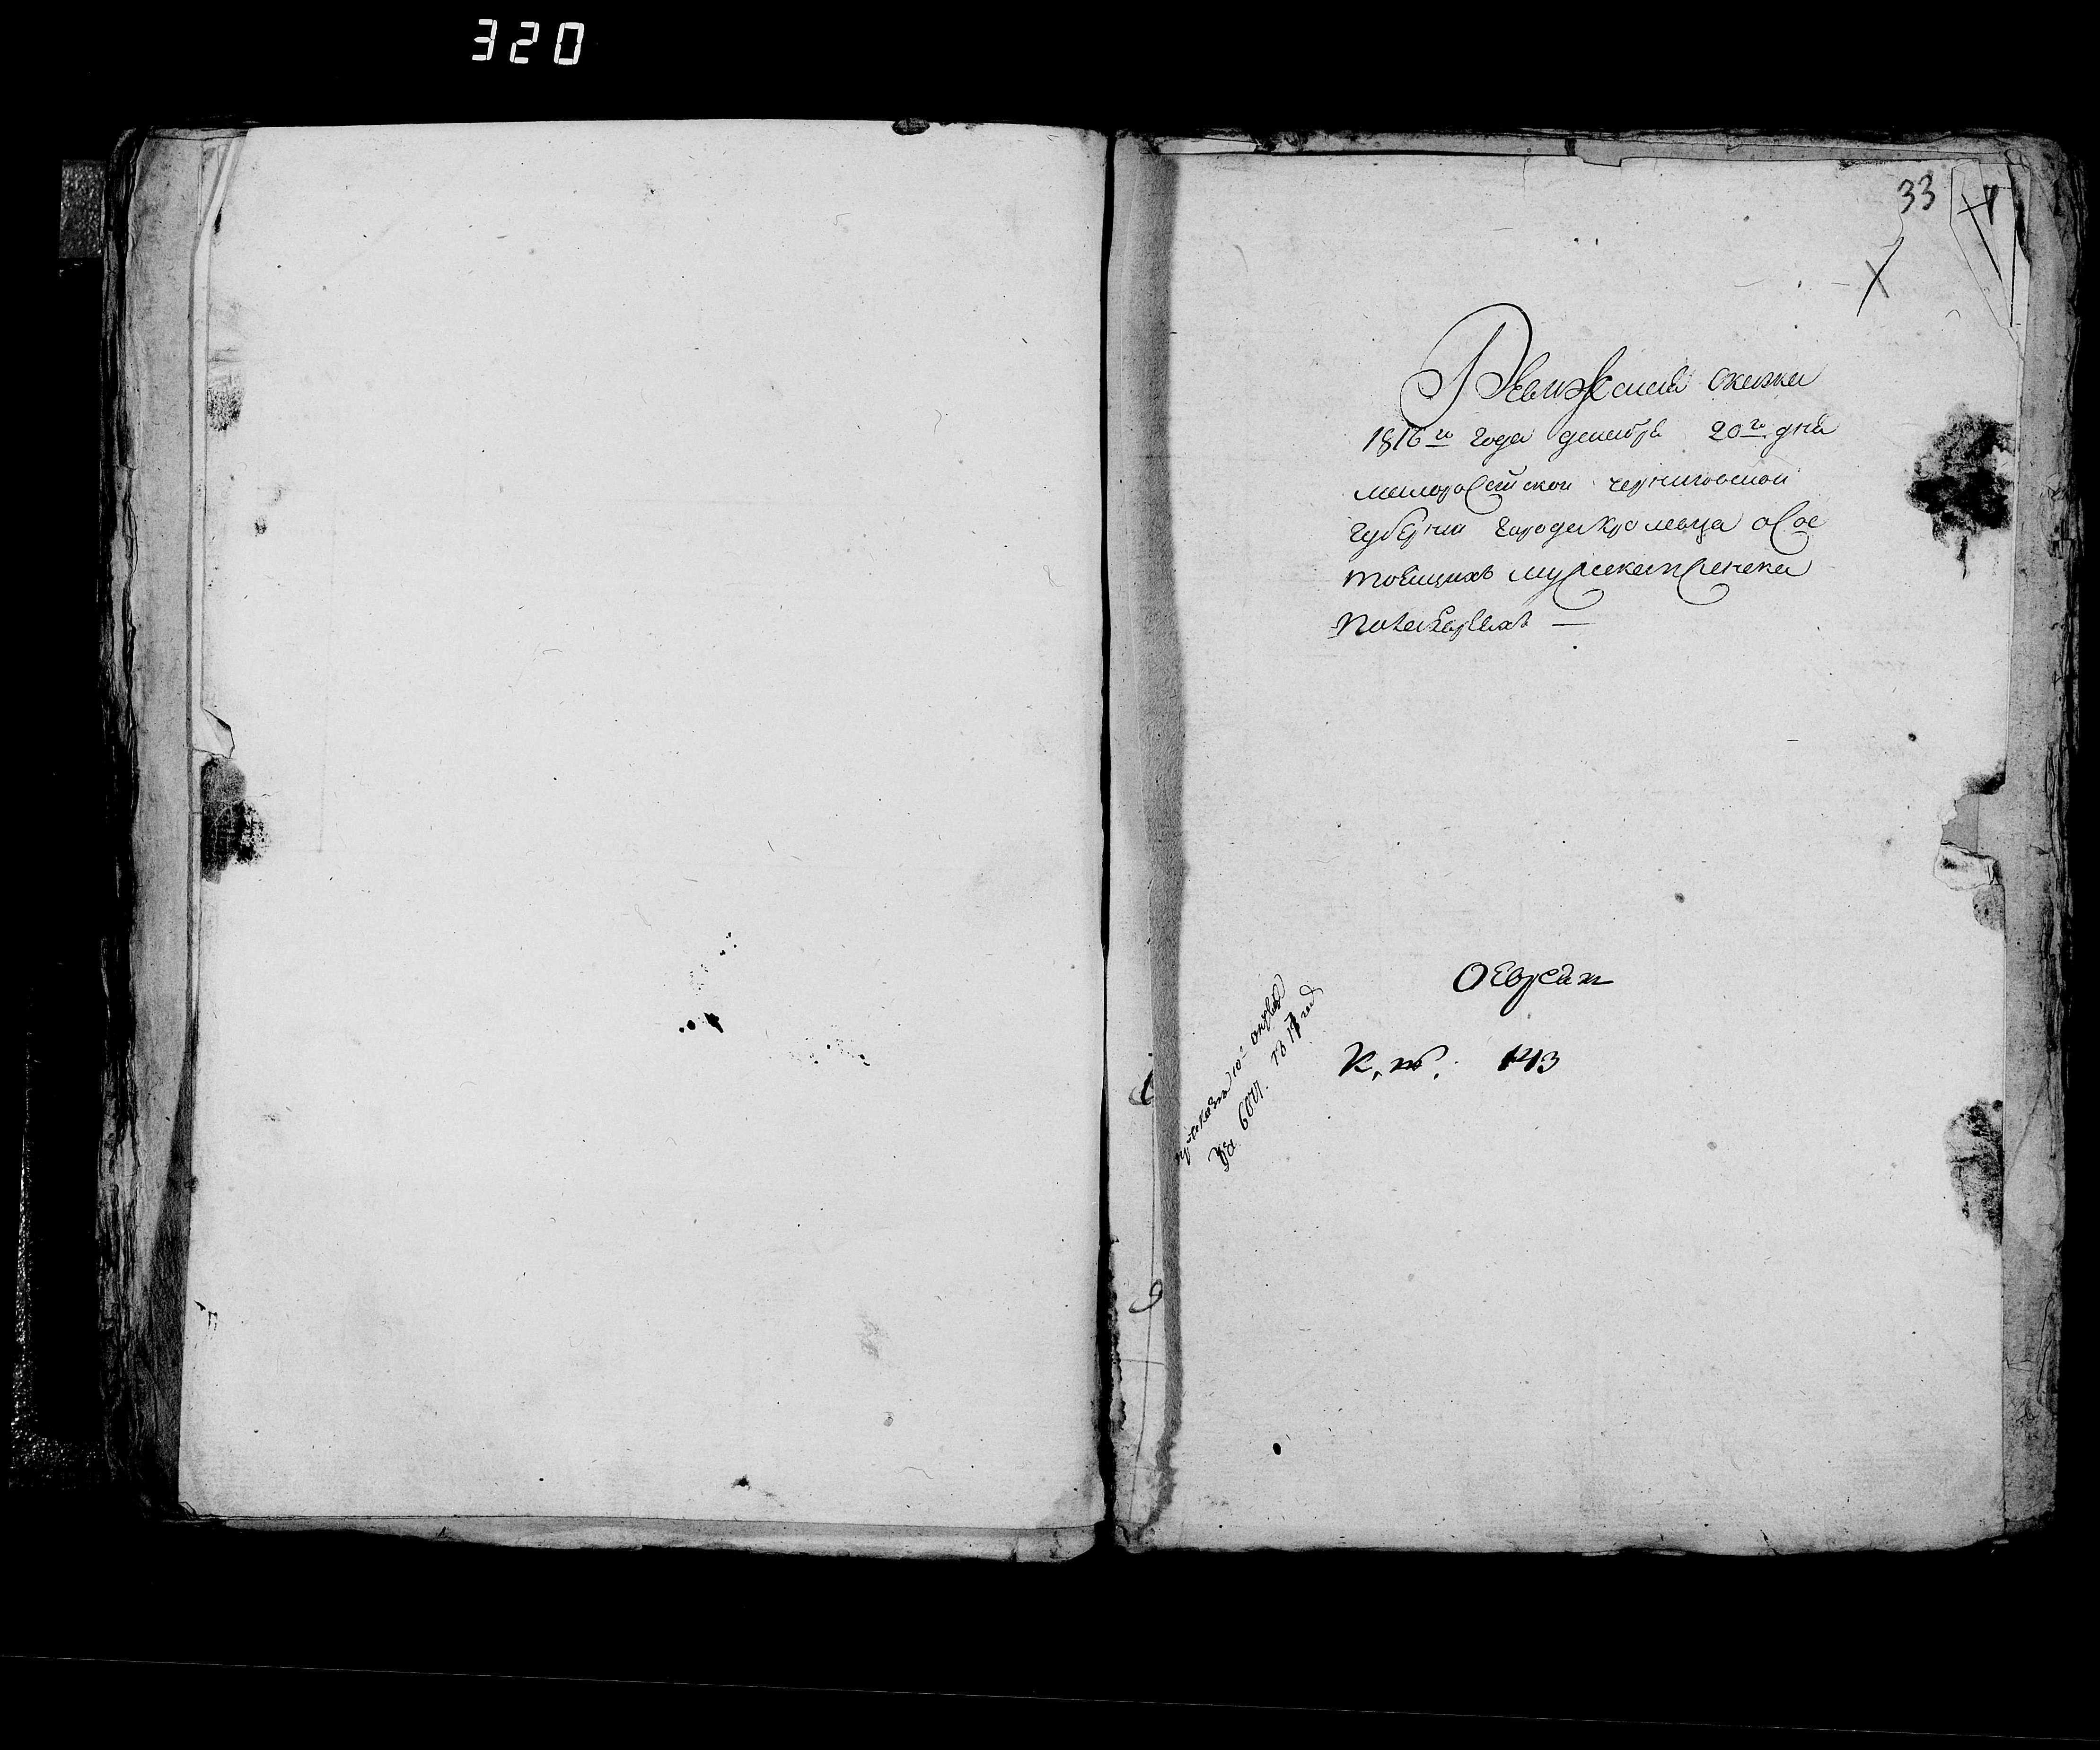 320
33
Ревизская скаска
1816го года декабря 20го дня
малоросейской черниговской
губернии города кролевца о сос
тоящих мужеска и женска
пола евреях —
О евреях
К. №. 143